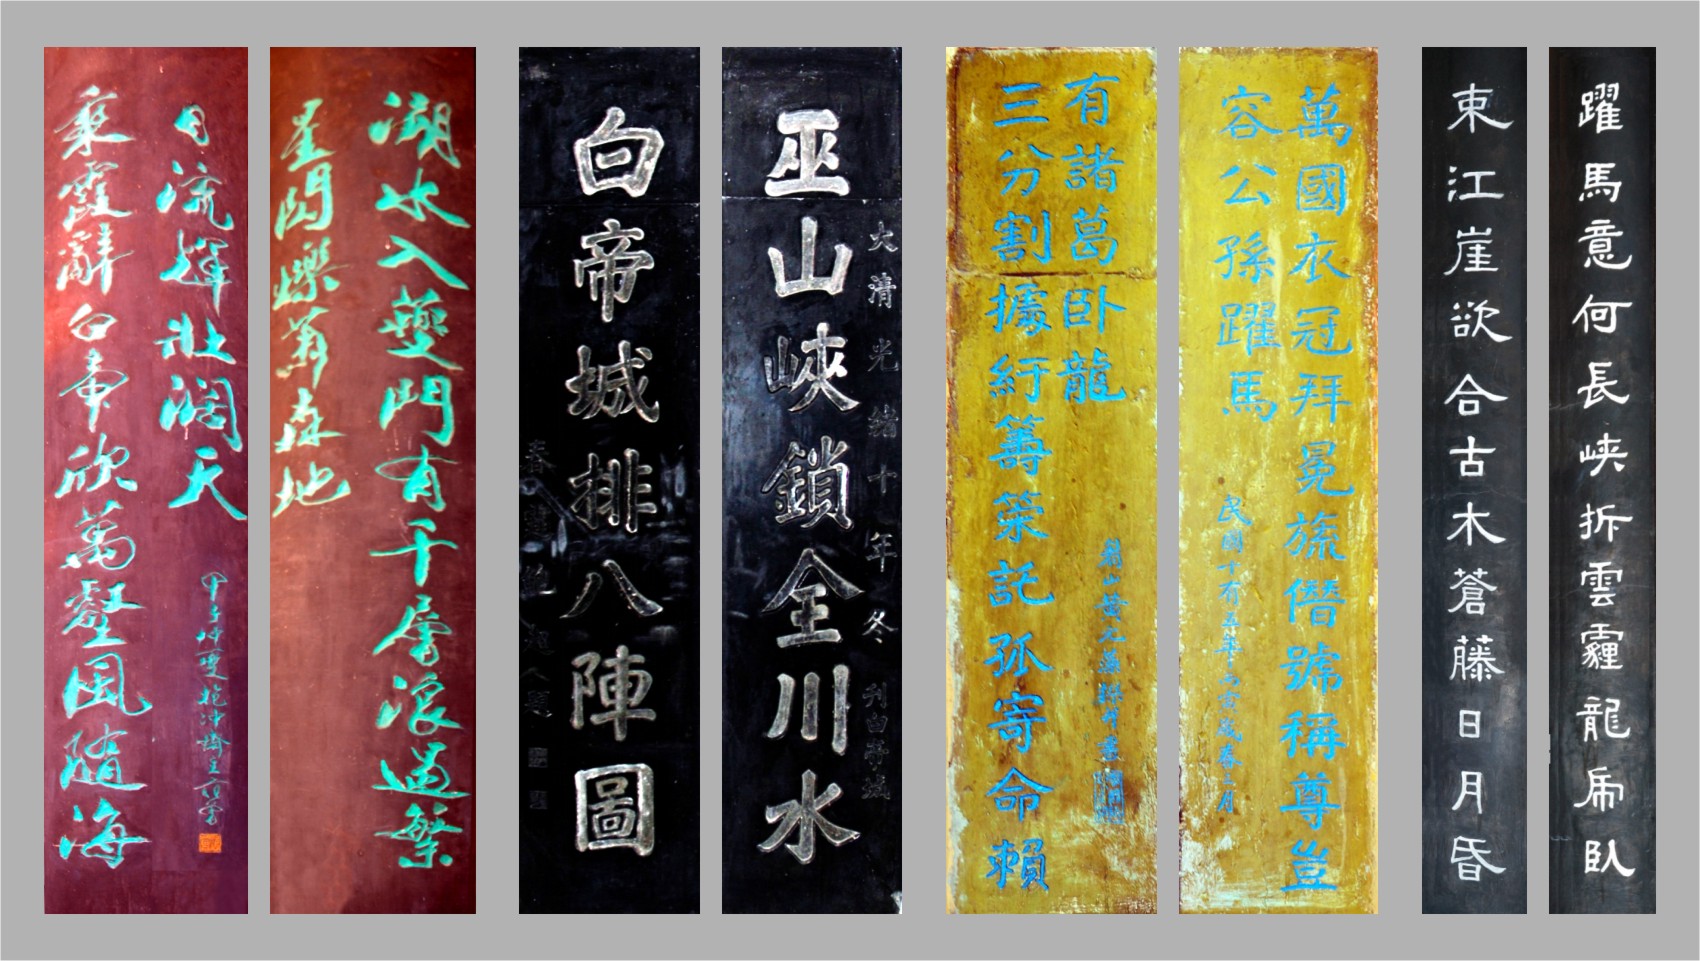 躍馬意何長峽拆雲霾龍虎臥
束江崖欲合古木蒼藤日月昏
萬國衣冠拜冕旒僭號稱尊豈
容公孫躍馬
民國十有五年丙寅歲春三月
三分割據紆籌策託孤寄命賴
有諸葛卧龍
大清光緒十年冬刊白帝城
巫山峽鎖全川水
白帝城排八陣圖
溯水入夔門有千層浪過繁
星閃爍蕭森地
乘霞辭白帝欣萬壑風隨海
日流輝壯闊天